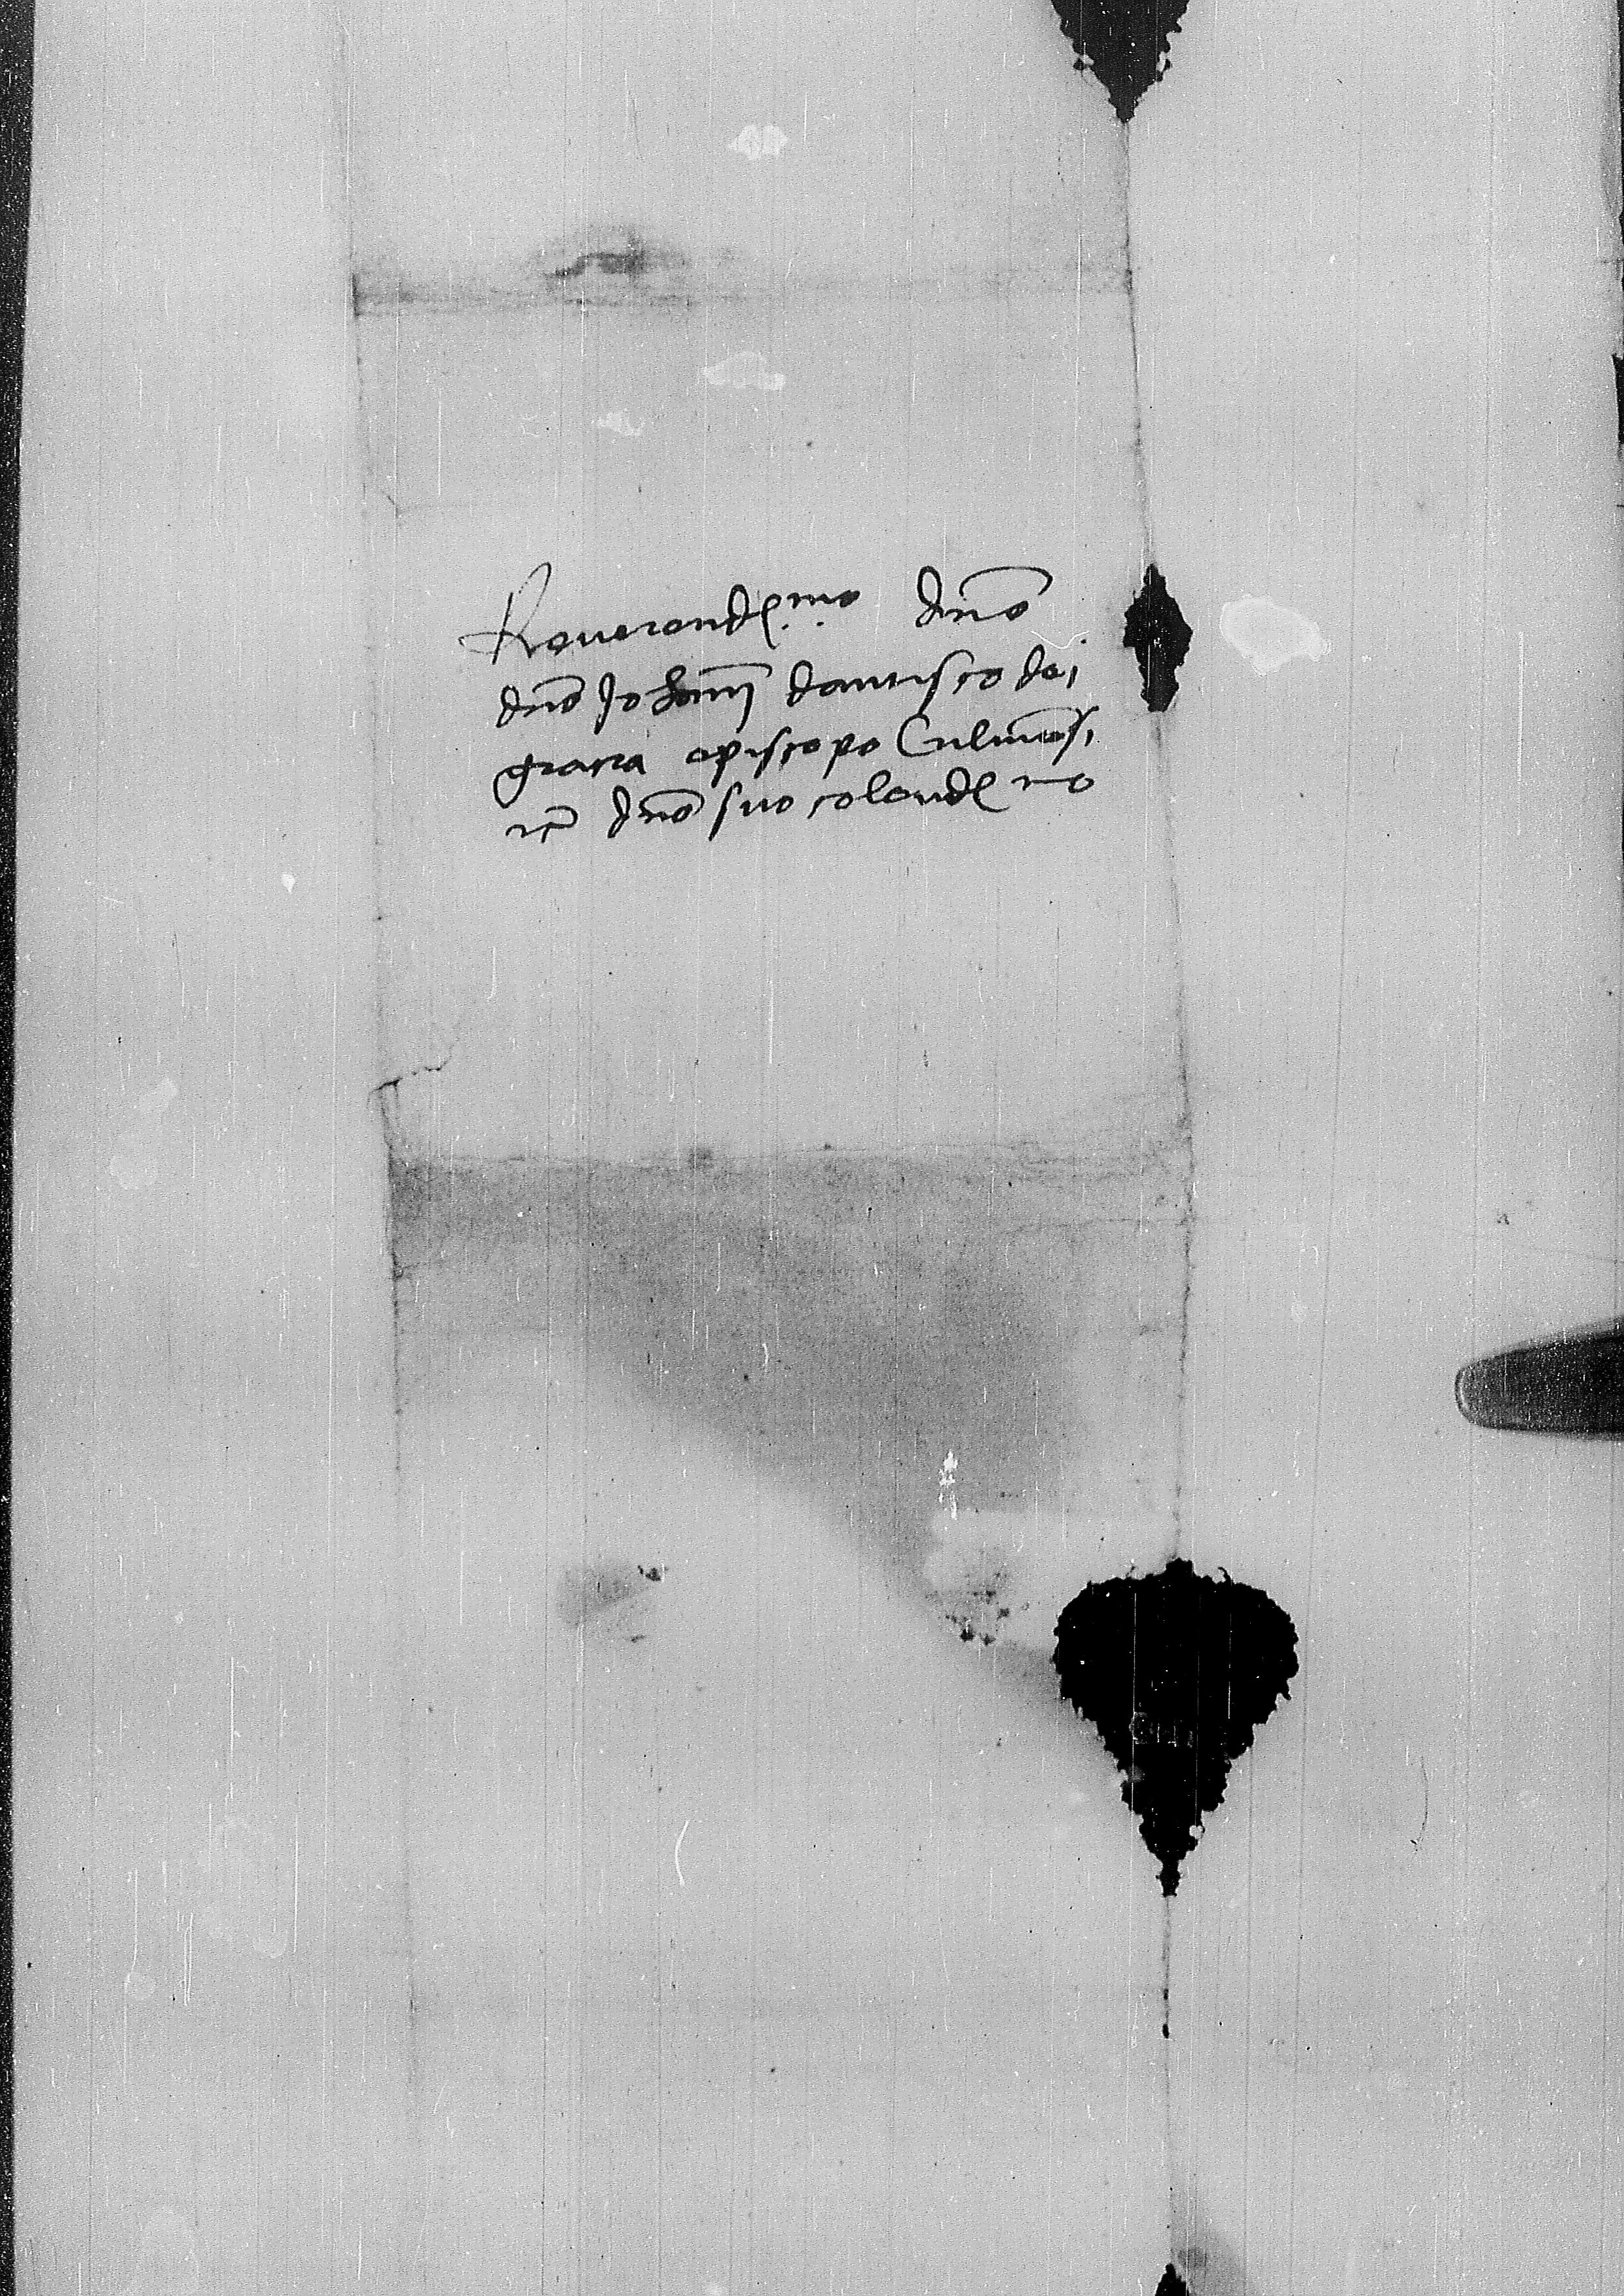 Reverend(issi)mo dno
dno Johanni dantisco dei
gracia episcopo Culmensi
etc dno suo colend(issi)mo